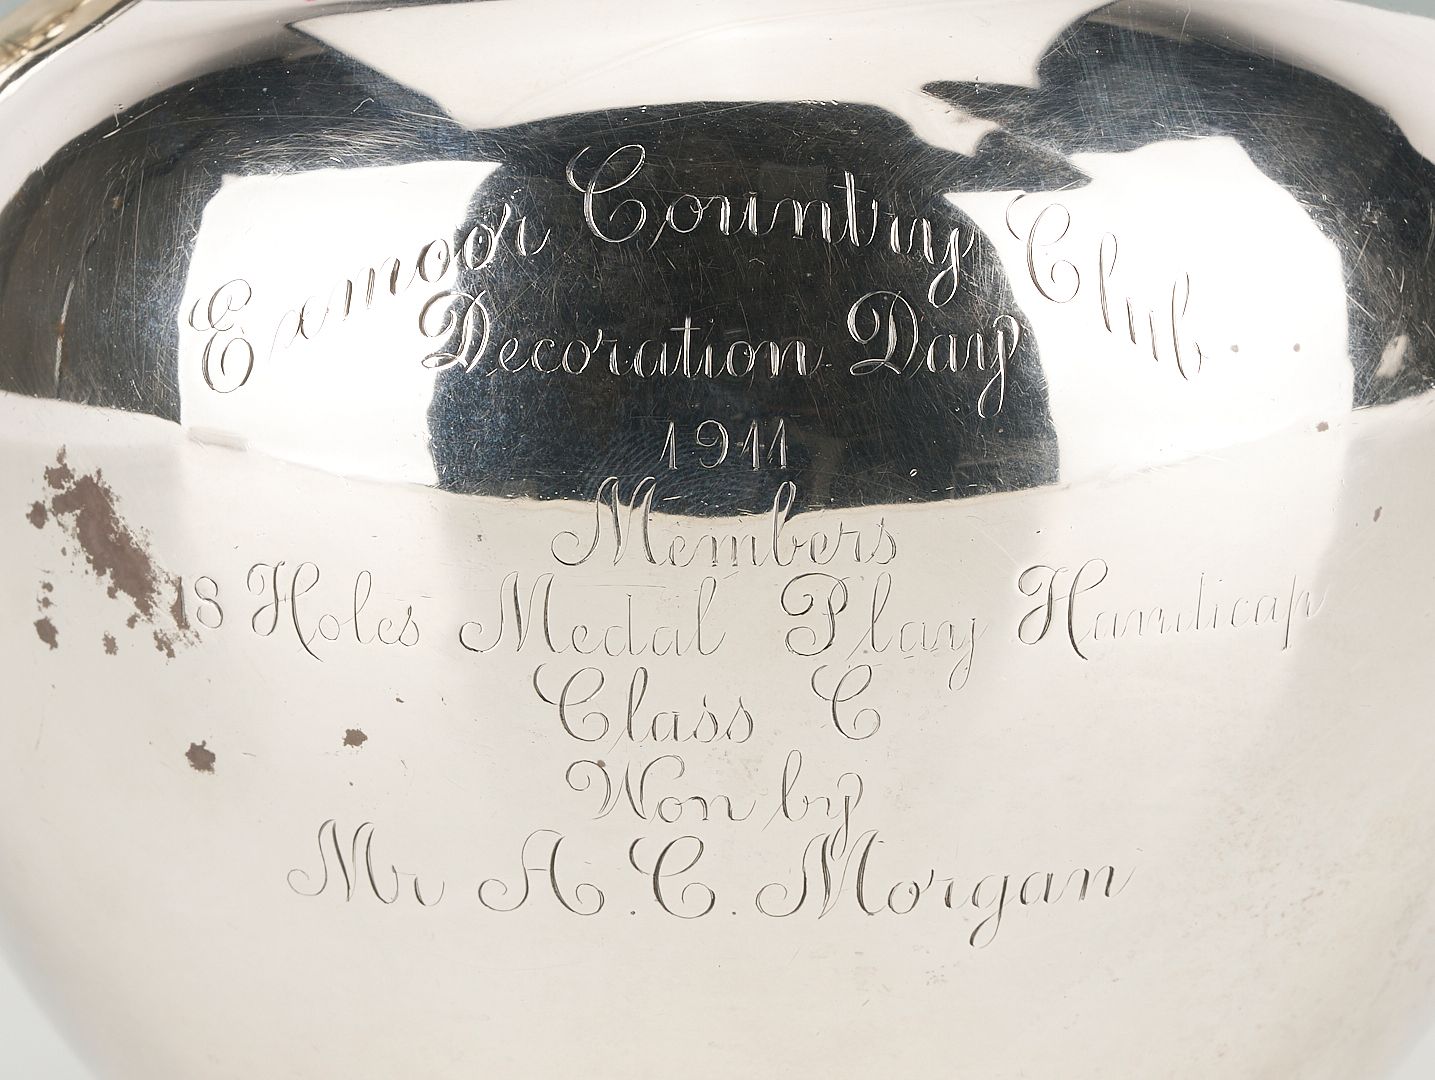 Exmoor Country Club..
Decoration Day
1911
Members
18 Holes Medal Play Handicap
Class C
Won by
Mr A.C. Morgan